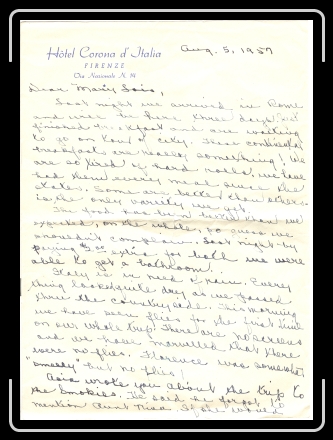 Hôtel Corona d' Italia
FIRENZE
Via Nazionale N. 14
Aug. 5, 1957
Dear Mary Lois,
Last night we arrived in Rome
and were to be here three days. We
finished breakfast and are waiting
to go on tour of city. These continental
breakfasts are really something! We
are so tired of hard rolls, we have
had them every meal since the
states. Some are better than others
is the only variety we get.
The food has been better than we
expected, on the whole, so guess we
shouldn't complain. Last night by
paying extra for both we were
able to get a bathroom.
Italy is in need of rain. Every
thing looked quite dry as we passed
thru the countryside. This morning
we have seen flies for the first time
on our whole trip. There are no screens
and we have marvelled that there
were no flies. Florence was somewhat
"smelly" but no flies!
wrote you about the trip to
the Smokies. He said he forgot to
mention Aunt If she would